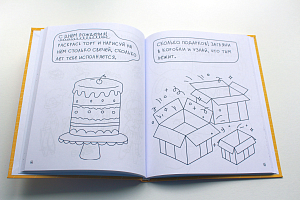 С ДНЁМ РОЖДЕНИЯ!
РАСКРАСЬ ТОРТ И НАРИСУЙ НА
НЁМ СТОЛЬКО СВЕЧЕЙ, СКОЛЬКО
ЛЕТ ТЕБЕ ИСПОЛНЯЕТСЯ.
СКОЛЬКО ПОДАРКОВ! ЗАГЛЯНИ
В КОРОБКИ И УЗНАЙ, ЧТО ТАМ
ЛЕЖИТ.